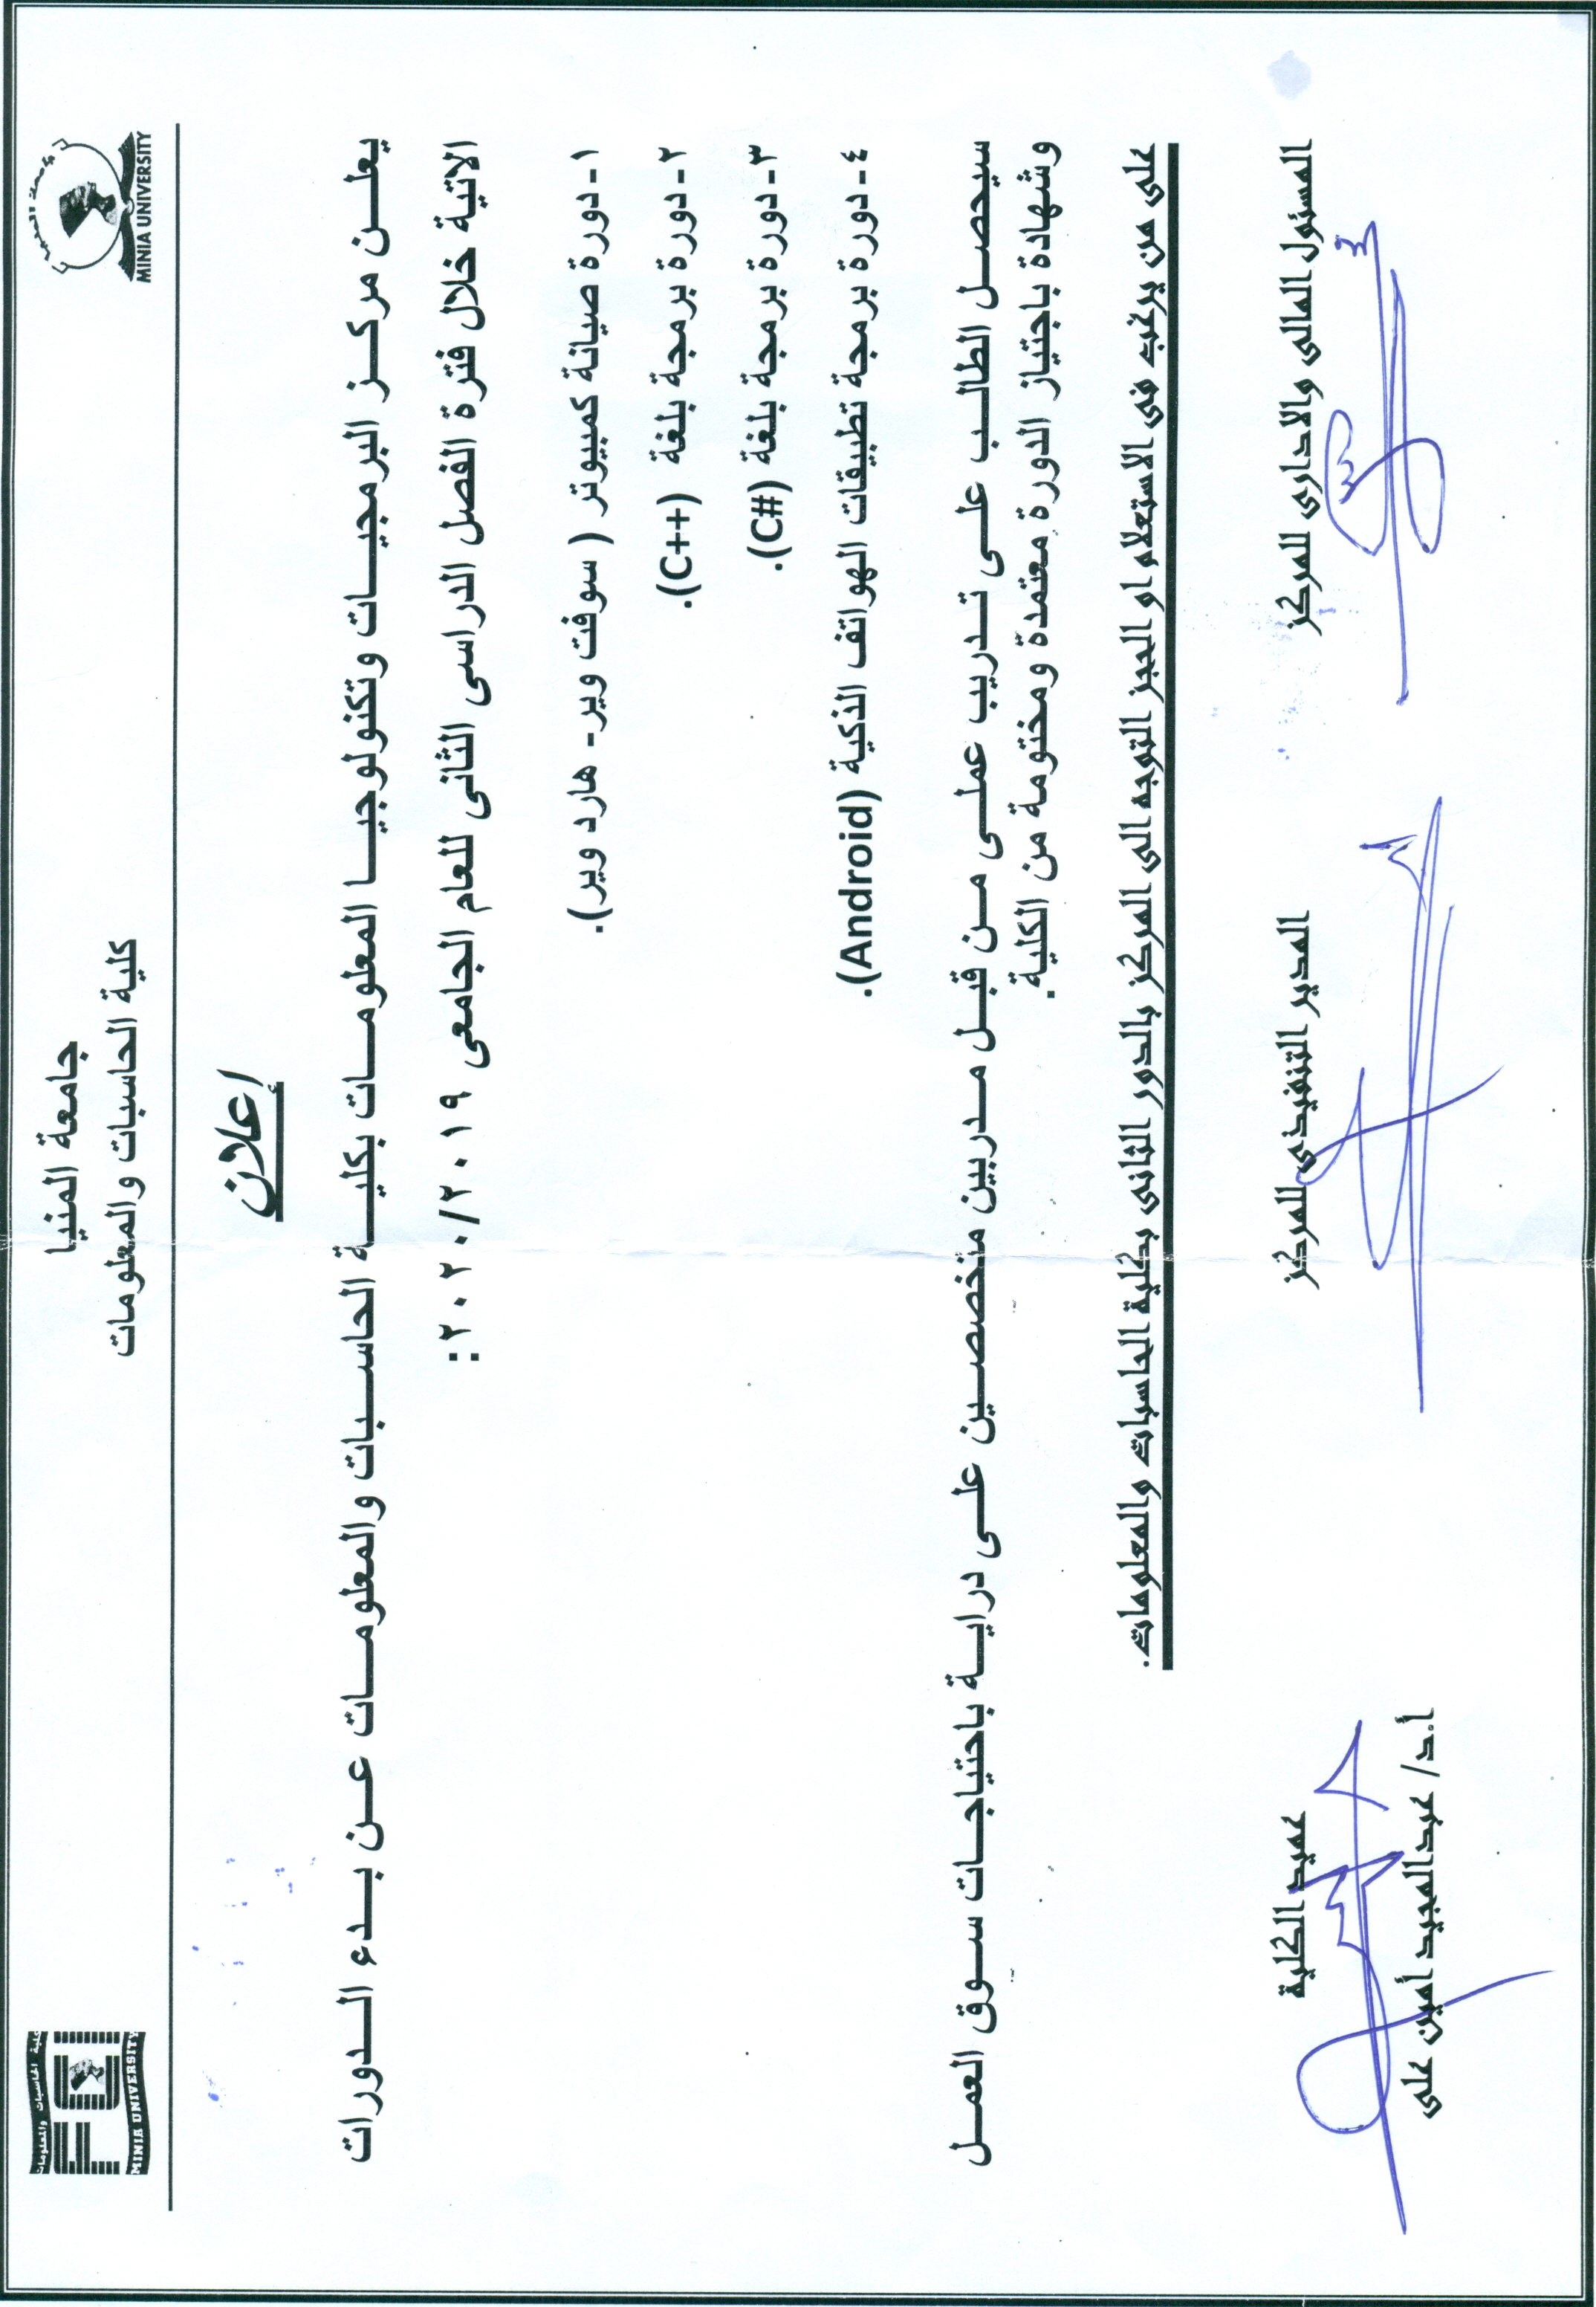 جامعة المنيا
كلية الحاسبات والمعلومات
MINIA UNIVERSITY
كلية الحاسبات والمعلومات
FCI
MINIA UNIVERSITY
إعلان
يعلن مركز البرمجيات وتكنولوجيا المعلومات بكلية الحاسبات والمعلومات عن بدء الدورات
الاتية خلال فترة الفصل الدراسى الثانى للعام الجامعى ٢٠٢٠/٢٠١٩ :
١- دورة صيانة كمبيوتر ( سوفت وير- هارد وير).
٢- دورة برمجة بلغة (C++).
٣- دورة برمجة بلغة (C#).
٤- دورة برمجة تطبيقات الهواتف الذكية (Android).
سيحصل الطالب على تدريب عملى من قبل مدربين متخصصين على دراية باحتياجات سوق العمل
وشهادة باجتياز الدورة معتمدة ومختومة من الكلية.
على من يرغب فى الاستعلام او الحجز التوجه الى المركز بالدور الثانى بكلية الحاسبات والمعلومات.
المسئول المالى والادارى للمركز
المدير التنفيذى للمركز
عميد الكلية
أ.د/ عبدالمجيد أمين على